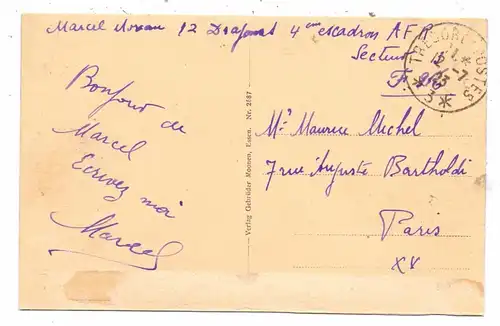 Marcel 12 Dragons 4em escadron A F R
Secteur
TRESOR POSTES
15 -7
23
* 3 *
Bonjour de
Marcel
Ecrivez moi
Marcel
Verlag Gebrüder Moonen, Essen. Nr. 2187
Mr Maurice Michel
7 rue Auguste Bartholdi
Paris
XV